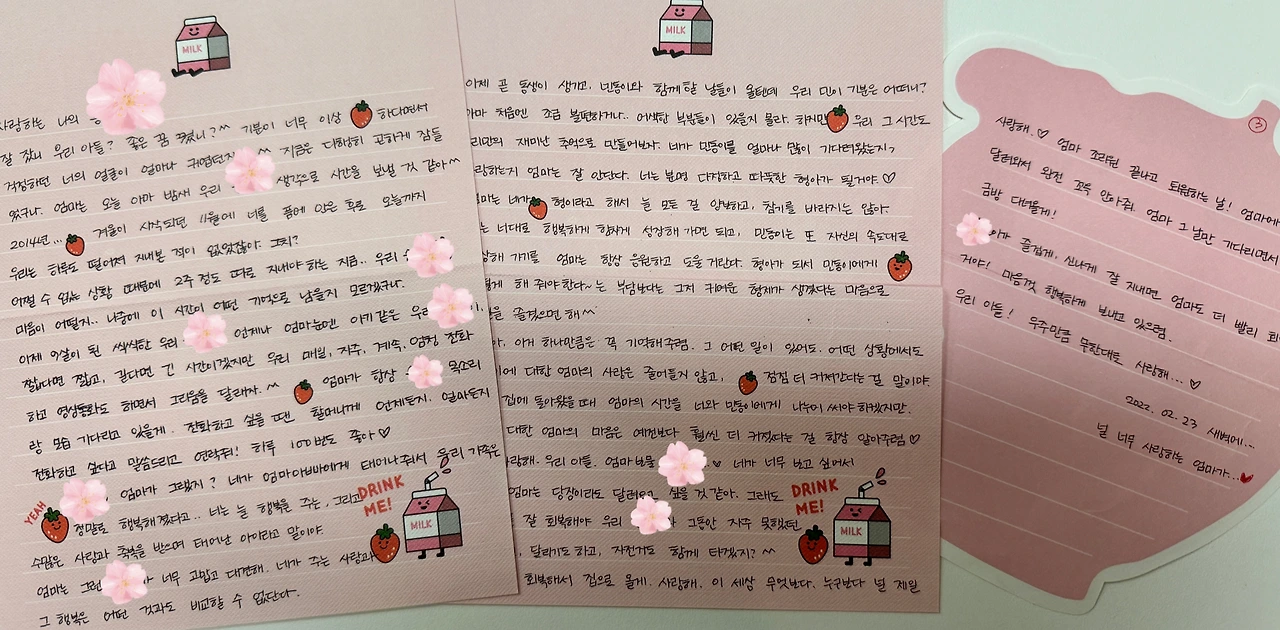 MILK
사랑하는 나의
잘 잤니 우리 아들? 좋은 꿈 꿨니?^^ 기분이 너무 이상 하다면서
걱정하던 너의 얼굴이 얼마나 귀엽던지 ^^ 지금은 다행히 곤하게 잠들
었구나. 엄마는 오늘 아마 밤새 우리 생각으로 시간을 보낼 것 같아^^
2014년... 겨울이 시작되던 11월에 너를 품에 안은 후로 오늘까지
우리는 하루도 떨어져 지내본 적이 없었잖아. 그치?
어쩔 수 없는 상황 때문에 2주 정도 따로 지내야 하는 지금.. 우리
마음이 어떨지.. 나중에 이 시간이 어떤 기억으로 남을지 모르겠구나.
이제 9살이 된 씩씩한 우리 언제나 엄마눈엔 아기 같은 우리
짧다면 짧고, 길다면 긴 시간이겠지만 우리 매일, 자주, 계속, 엄청 전화
하고 영상통화도 하면서 그리움을 달래자.^^ 엄마가 항상 목소리
랑 모습 기다리고 있을게. 전화하고 싶을 땐, 할머니께 언제든지, 얼마든지
전화하고 싶다고 말씀드리고 연락줘! 하루 100번도 좋아♡
YEAH 엄마가 그랬지? 네가 엄마아빠에게 태어나줘서 우리 가족은
정말로 행복해졌다고.. 너는 늘 행복을 주는, 그리고
DRINK
ME!
MILK
수많은 사랑과 축복을 받으며 태어난 아이라고 말이야.
엄마는 그런 너무 고맙고 대견해. 네가 주는 사랑과
그 행복은 어떤 것과도 비교할 수 없단다.
MILK
이제 곧 동생이 생기고, 민동이와 함께 할 날들이 올텐데 우리 민이 기분은 어떠니?
아마 처음엔 조금 불편하거나.. 어색한 부분들이 있을지 몰라. 하지만 우리 그 시간도
우리만의 재미난 추억으로 만들어보자. 네가 민동이를 얼마나 많이 기다려왔는지,
사랑하는지 엄마는 잘 안단다. 너는 분명 다정하고 따뜻한 형아가 될거야.♡
엄마는 네가 형이라고 해서 늘 모든 걸 양보하고, 참기를 바라지는 않아.
는 너대로 행복하게 힘차게 성장해 가면 되고, 민동이는 또 자신의 속도대로
성장해 가기를 엄마는 항상 응원하고 도울 거란다. 형아가 되서 민동이에게
게 해 줘야한다.는 부담보다는 그저 귀여운 형제가 생겼다는 마음으로
을 즐겼으면 해^^
이거 하나만큼은 꼭 기억해주렴. 그 어떤 일이 있어도, 어떤 상황에서도
에 대한 엄마의 사랑은 줄어들지 않고, 점점 더 커져간다는 걸 말이야.
집에 돌아왔을 때 엄마의 시간을 너와 민동이에게 나누어 써야 하겠지만,
대한 엄마의 마음은 예전보다 훨씬 더 커졌다는 걸 항상 알아주렴♡
사랑해. 우리 아들. 엄마보물 네가 너무 보고 싶어서
엄마는 당장이라도 달려오고 싶을 것 같아. 그래도
DRINK
ME!
MILK
잘 회복해야 우리 그동안 자주 못했던
달리기도 하고, 자전거도 함께 타겠지? ^^
회복해서 집으로 올게. 사랑해. 이 세상 무엇보다. 누구보다 널 제일
③
사랑해.♡ 엄마 조리원 끝나고 퇴원하는 날! 엄마에
달려와서 완전 꼬옥 안아줘. 엄마 그 날만 기다리면서
금방 다녀올게!
아가 즐겁게, 신나게 잘 지내면 엄마도 더 빨리 회
거야! 마음껏 행복하게 보내고 있으렴.
우리 아들! 우주만큼 무한대로 사랑해...♡
2022. 02. 23 새벽에...
널 너무 사랑하는 엄마가...♥